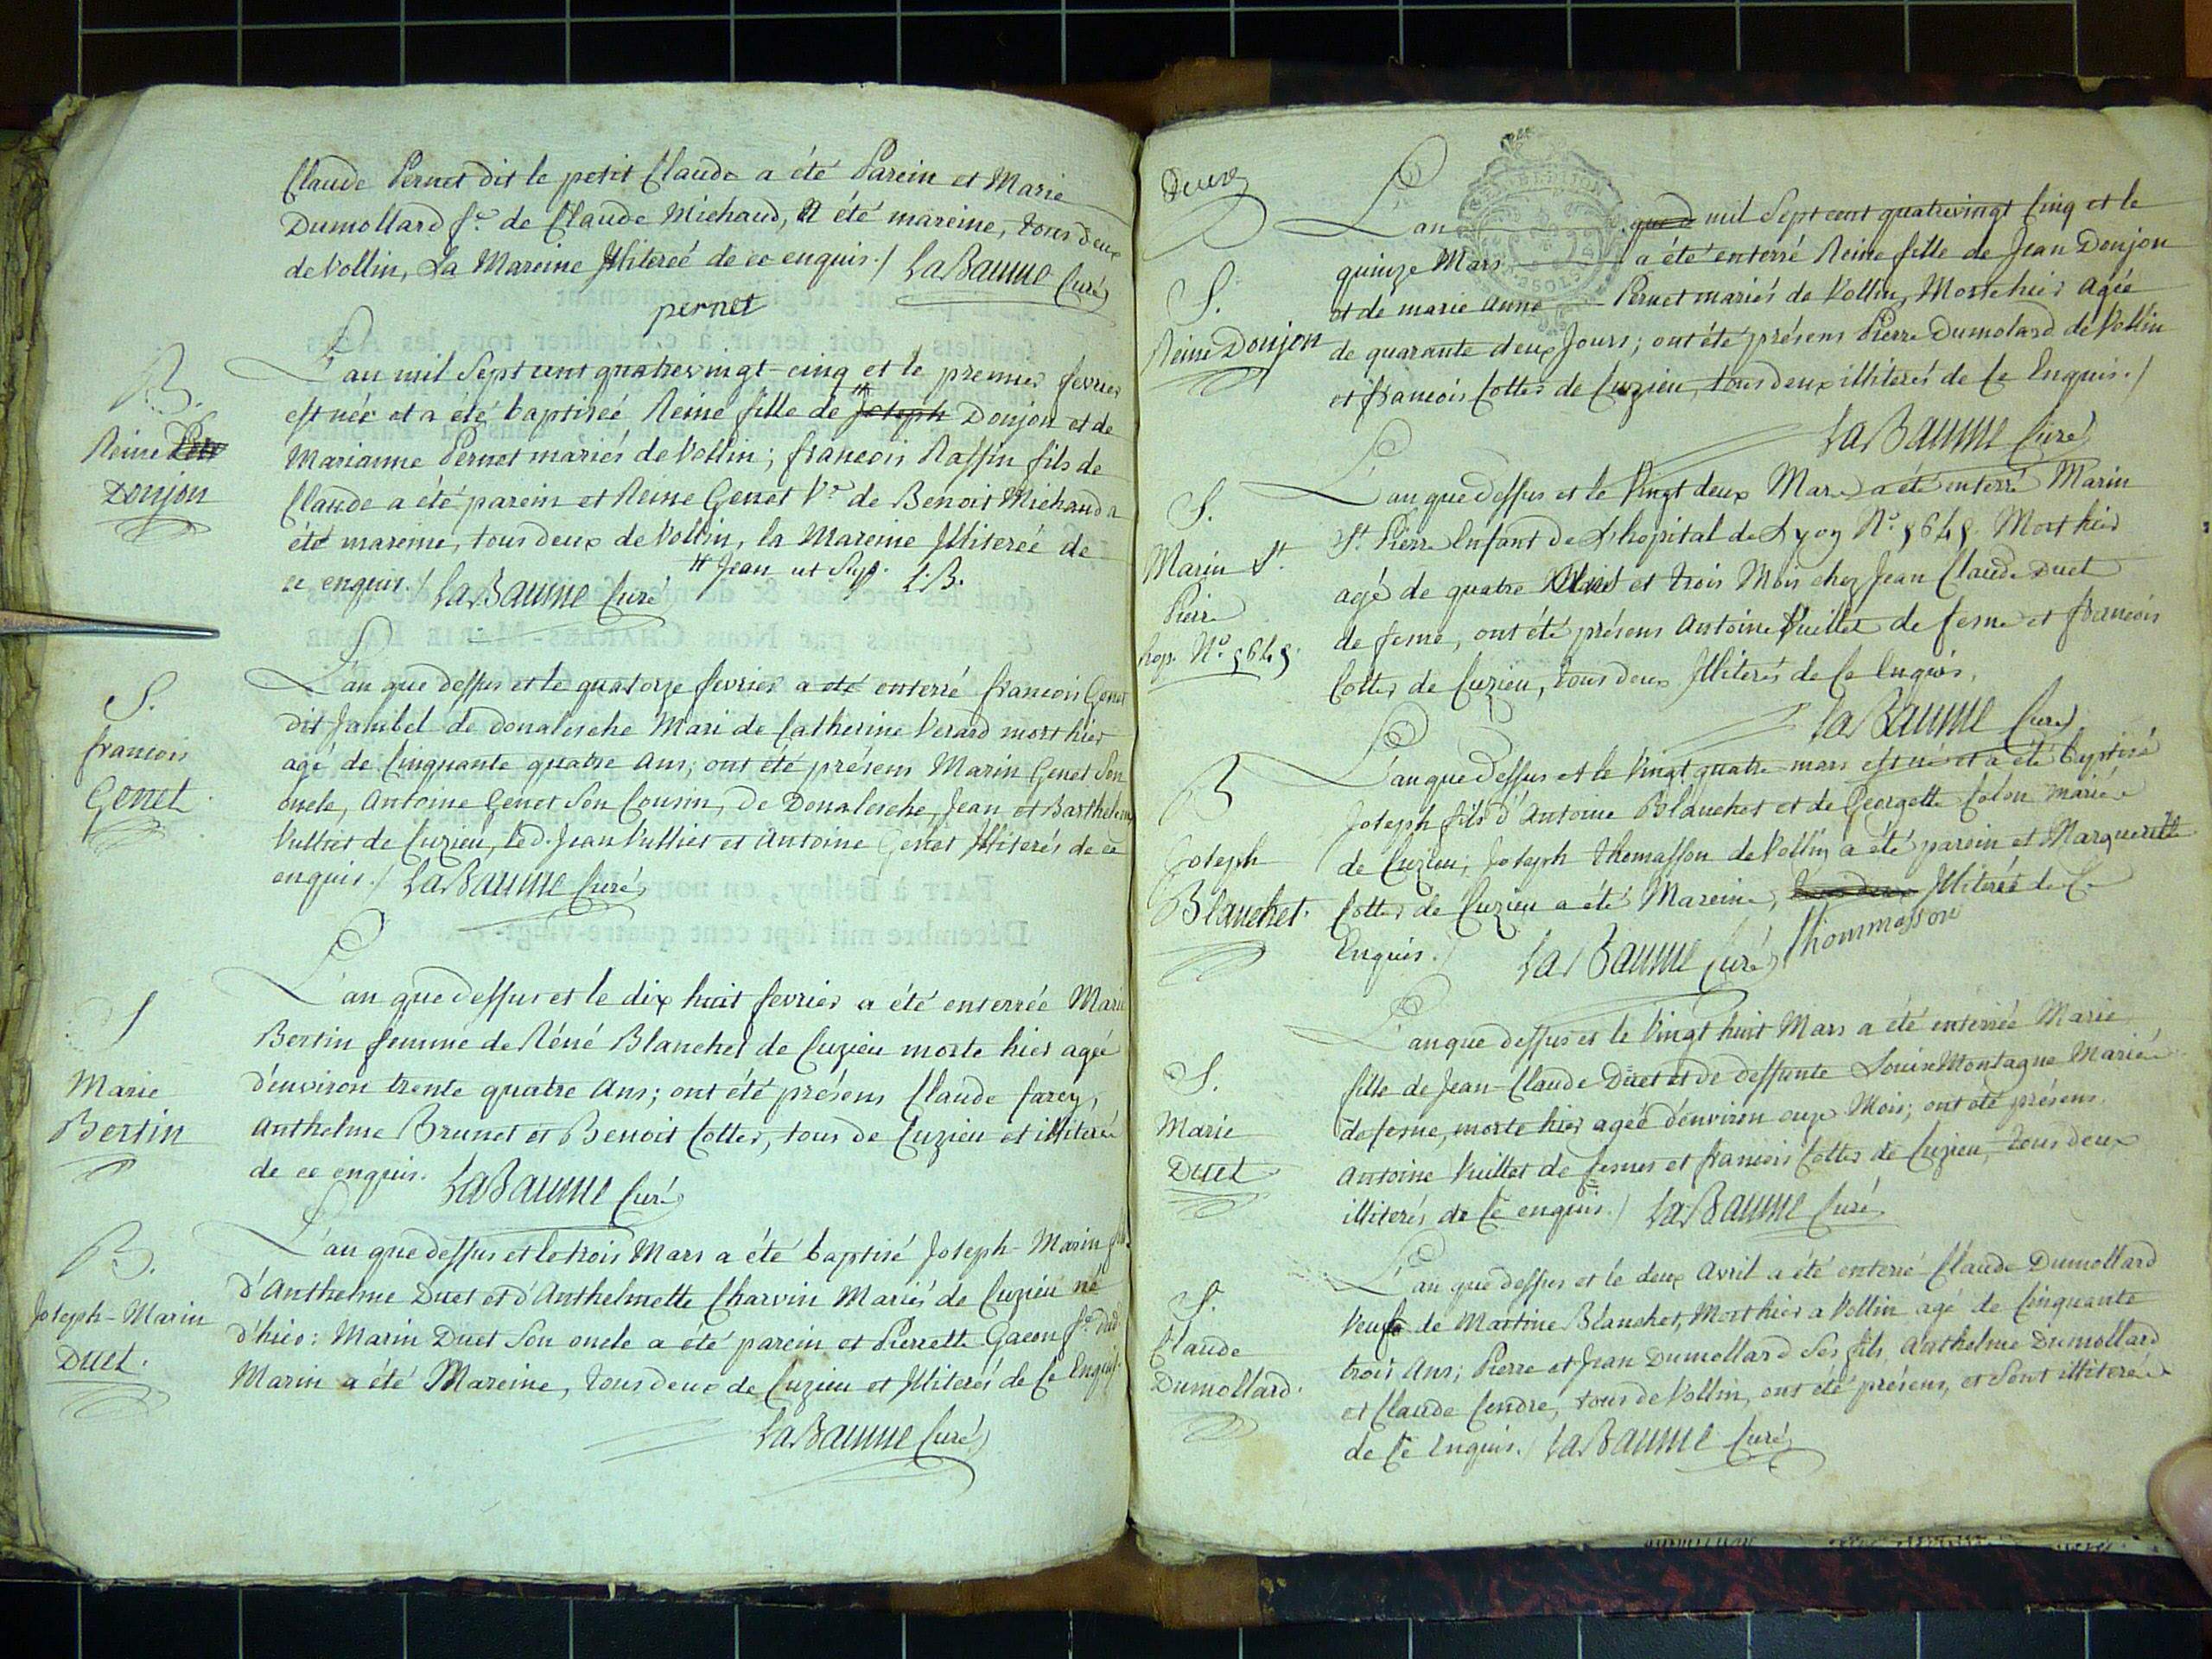 Claude Pernet dit le petit Claude a été Parein et Marie
Dumollard f.e de Claude Michaud, A été mareine, tous deux
de Vollin, La Mareine Illiterée de ce enquis./ LaBaume Curé
pernet
B.
Reine
Donjon
L'an mil Sept cent quatrevingt-cinq et le premier fevrier
est née et a été baptisée Reine fille de Joseph Donjon et de
Marianne Pernet mariés de Vollin; francois Raffin fils de
Claude a été parein et Reine Genet V.e de Benoit Michaud a
été mareine, tous deux de Vollin, la Mareine Illiterée de
ce enquis./ LaBaume Curé
# Jean ut Sup. L.B.
S.
francois
Genet
L'an que dessus et le quatorze fevrier a été enterré francois Genet
dit Jambel de donalesche Mari de Catherine Verard mort hier
agé de Cinquante quatre Ans; ont été présens Marin Genet Son
oncle, Antoine Genet Son Cousin, de Donalesche, Jean et Barthelemi
Vulliet de Cuzieu, led. Jean Vulliet et Antoine Genet Illiterés de ce
enquis./ LaBaume Curé
S
Marie
Bertin
L'an que dessus et le dix huit fevrier a été enterrée Marie
Bertin femme de Réné Blanchet de Cuzieu morte hier agée
d'environ trente quatre Ans; ont été présens Claude Carey,
Anthelme Brunet et Benoit Cotter, tous de Cuzieu et illiterés
de ce enquis. LaBaume Curé
B.
Joseph-Marin
Duet.
L'an que dessus et le trois Mars a été baptisé Joseph-Marin fils
d'Anthelme Duet et d'Anthelmette Charvin Mariés de Cuzieu né
d'hier: Marin Duet Son oncle a été parein et Pierrette Gacon f.e dud.
Marin a été Mareine, tous deux de Cuzieu et Illiterés de Ce Enquis.
LaBaume Curé
Deux
S.
Reine Donjon
L'an mil Sept cent quatrevingt Cinq et le
quinze Mars a été enterré Reine fille de Jean Donjon
et de marie Anne Pernet mariés de Vollin, Morte hier Agée
de quarante deux Jours; ont été présens Pierre Dumolard de Vollin
et francois Cotter de Cuzieu, tous deux illiterés de Ce Enquis./
LaBaume Curé
S.
Marin St.
Pierre
hop. N.o 5645.
L'an que dessus et le Vingt deux Mars a été enterré Marin
St. Pierre Enfant de L'hopital de Lyon N.o 5645. Mort hier
agé de quatre et trois Mois chez Jean Claude Duet
de ferne, ont été présens Antoine Vuillet de ferne et francois
Cotter de Cuzieu, tous deux Illiterés de Ce Enquis.
LaBaume Curé
B
Joseph
Blanchet.
L'an que dessus et le Vingt quatre mars est né et a été baptisé
Joseph fils d'Antoine Blanchet et de Georgette Colon mariés
de Cuzieu; Joseph Thomasson de Vollin a été parein et Marguerite
Cotter de Cuzieu a été Mareine, Illiterée de Ce
Enquis./ LaBaume Curé Thommasson
S.
Marie
Duet
L'an que dessus et le Vingt huit Mars a été enterrée Marie
fille de Jean-Claude Duet et de deffunte Louise Montagne Mariés
de ferne, morte hier agée d'environ onze Mois; ont été présens
Antoine Vuillet de fernes et francois Cotter de Cuzieu, tous deux
illiterés de Ce enquis./ LaBaume Curé
S.
Claude
Dumollard.
L'an que dessus et le deux Avril a été enterré Claude Dumollard
Veuf de Martine Blanchet, Mort hier a Vollin agé de Cinquante
trois Ans; Pierre et Jean Dumollard Ses fils, Anthelme Dumollard
et Claude Cendre, tous de Vollin, ont été présens, et Sont illiterés
de Ce Enquis./ LaBaume Curé